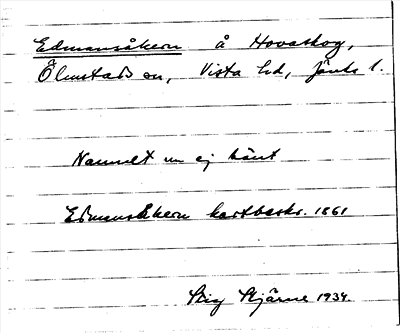 Edmansåkern å Hovaskog,
Ölmstads sn, Vista hd, Jönk. l.
Namnet nu ej känt
Edmansåkern kartbeskr. 1861
Stig Stjärne 1934.